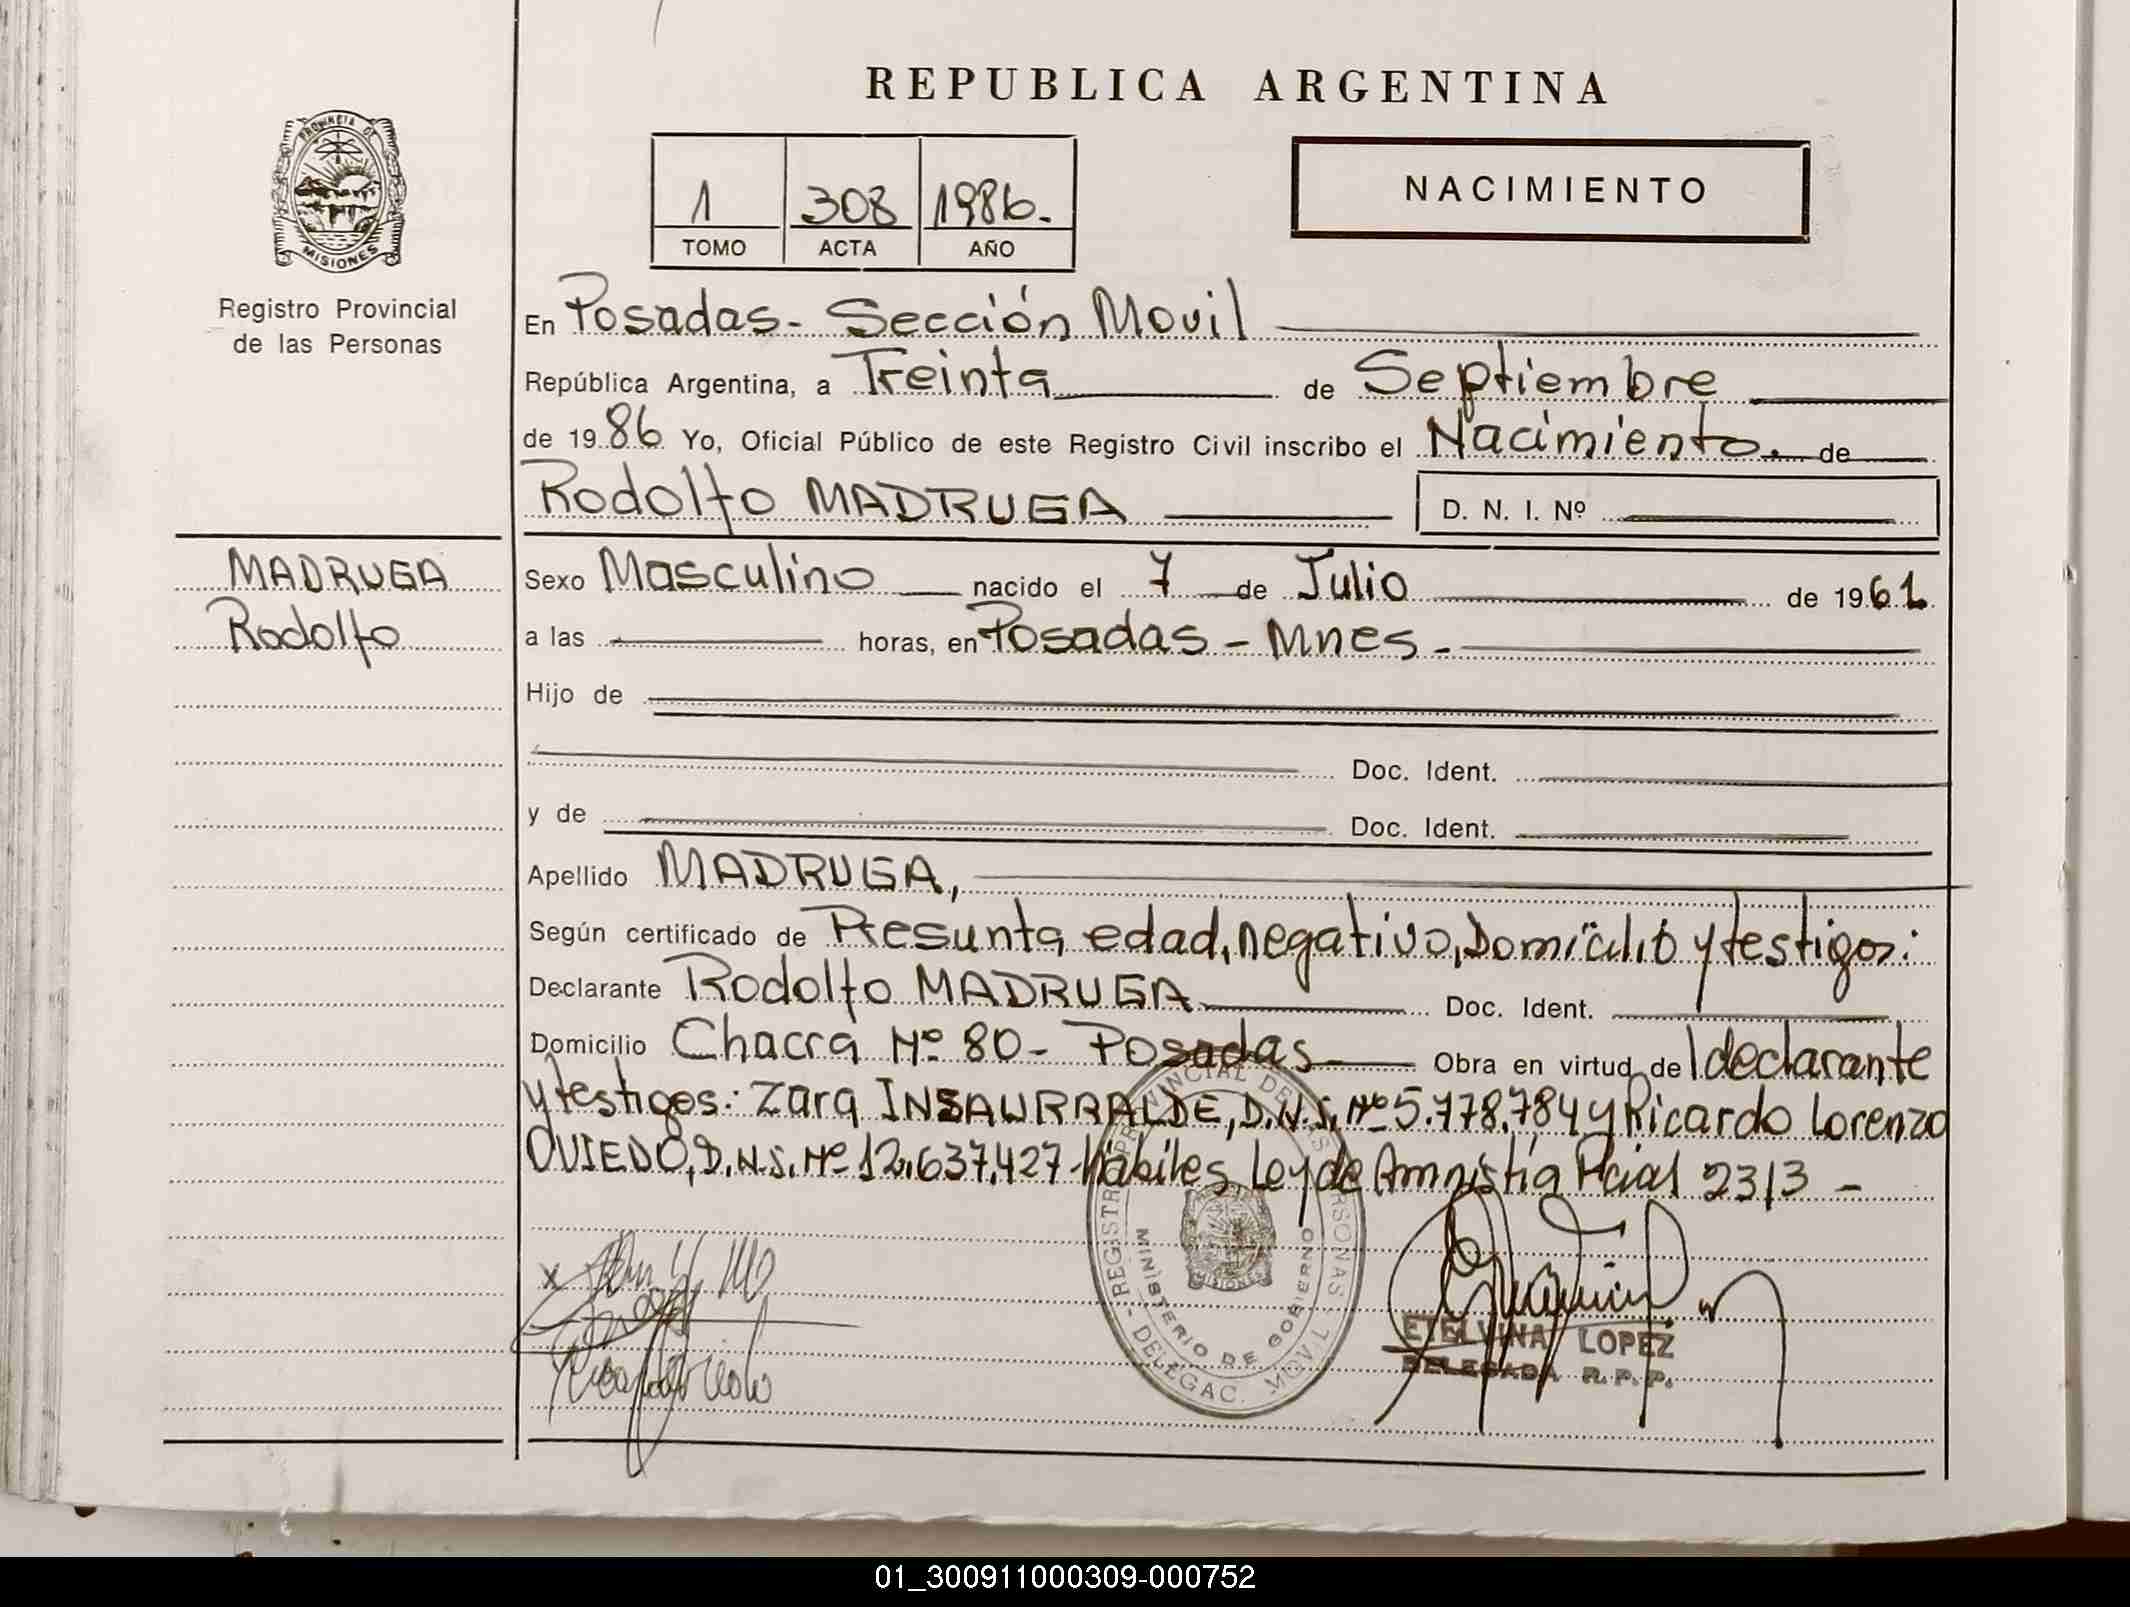 REPUBLICA ARGENTINA
PROVINCIA DE
MISIONES
Registro Provincial
de las Personas
1 308 1986.
TOMO ACTA AÑO
NACIMIENTO
En Posadas - Sección Movil
República Argentina, a Treinta de Septiembre
de 19 86 Yo, Oficial Público de este Registro Civil inscribo el Nacimiento. de
Rodolfo MADRUGA D. N. I. Nº
MADRUGA
Rodolfo
Sexo Masculino nacido el 7 de Julio de 1961
a las horas, en Posadas - Mnes -
Hijo de
Doc. Ident.
y de Doc. Ident.
Apellido MADRUGA,
Según certificado de Presunta edad, negativo, Domicilio y testigos:
Declarante Rodolfo MADRUGA Doc. Ident.
Domicilio Chacra Nº 80 - Posadas Obra en virtud de l declarante
y testigos: Zara INSAURRALDE, D.N.I. Nº 5.778.784 y Ricardo Lorenzo
OVIEDO, D.N.I. Nº 12.637.427 - Hábiles, Ley de Amnistía Pcial 2313 -
REGISTRO PROVINCIAL DE LAS PERSONAS
MINISTERIO DE GOBIERNO
MISIONES
DELEGAC. MOVIL
ETELVINA LOPEZ
DELEGADA R.P.P.
01_300911000309-000752